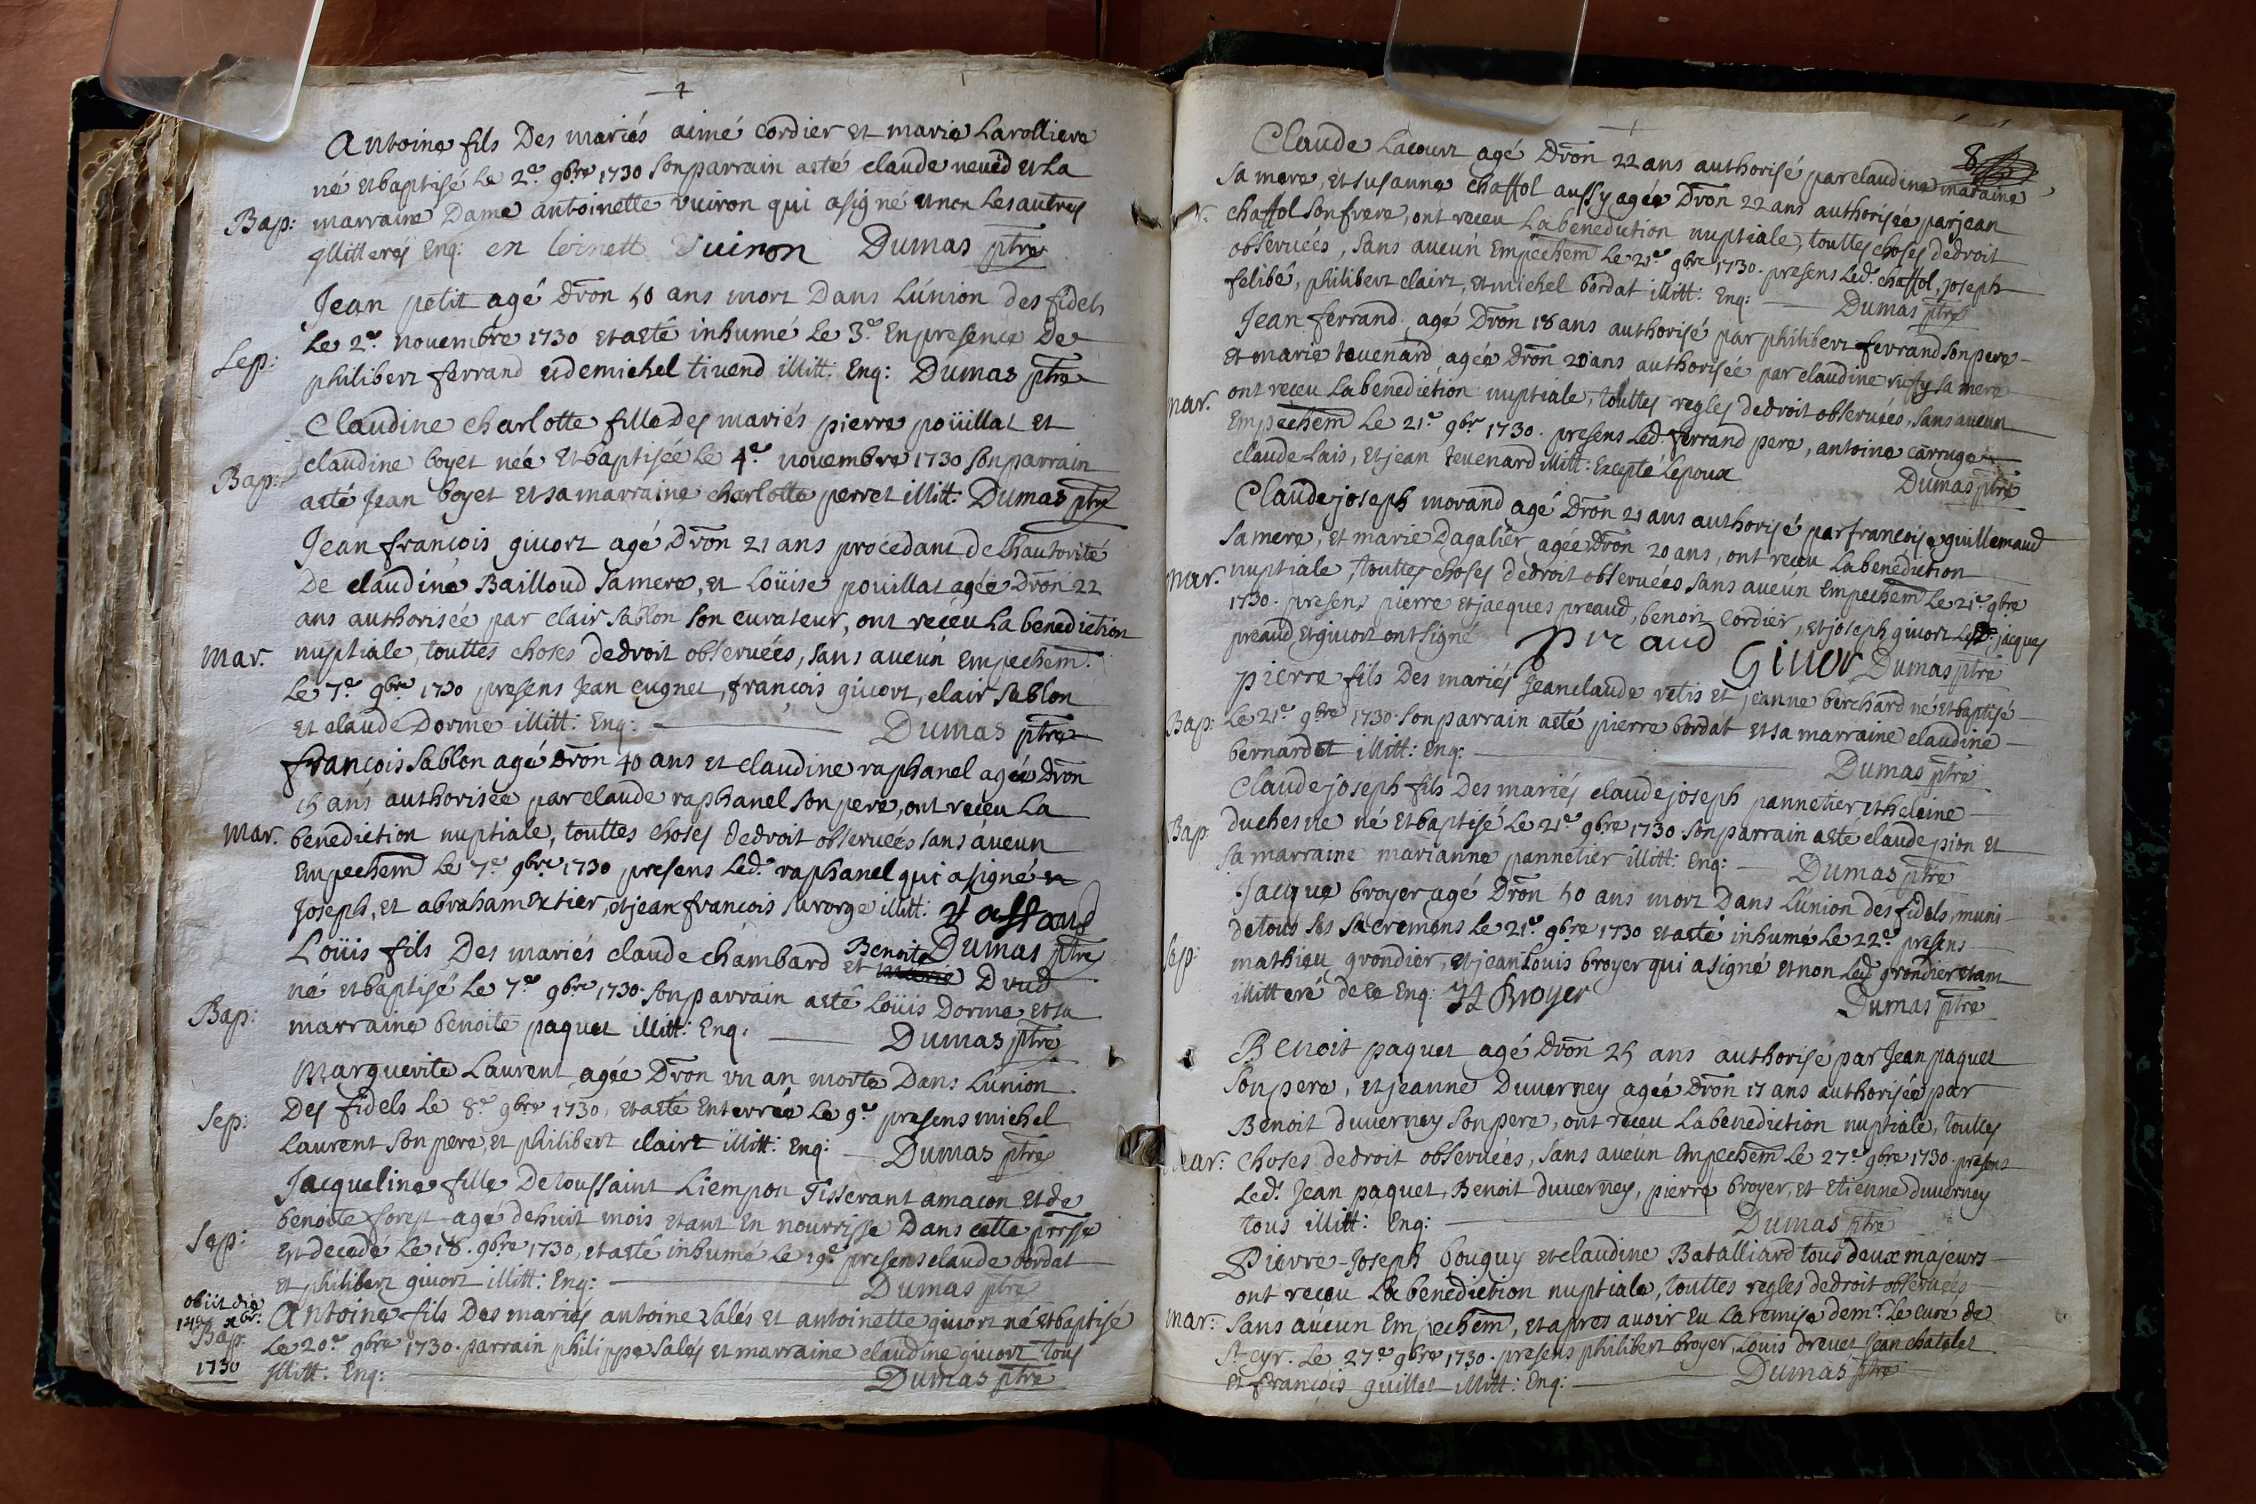 Antoine fils Des mariés aimé cordier et marie Larolliere
né et baptisé Le 2e. 9bre 1730 son parrain a eté claude et La
Bap: marraine Dame antoinette vuiron qui a signé et non Les autres
illitterés Enq: en toinett Vuiron Dumas ptre
Jean petit agé Dron 50 ans mort Dans L'union des fidels
Le 2e. novembre 1730 et a eté inhumé Le 3e. En presence De
Sep: philibert ferrand et de michel tivend illitt: Enq: Dumas ptre
Claudine charlotte fille Des mariés pierre poüillat et
claudine boyet née Et baptisée Le 4e. novembre 1730 son parrain
Bap: a eté Jean boyet et sa marraine charlotte perret illitt: Dumas ptre
Jean francois givort agé Dron 21 ans procedant de l'hautorité
De claudine Bailloud sa mere, et Loüise pouillat agée Dron 22
ans authorisée par clair sablon son curateur, ont reçeu La benediction
mar. nuptiale, touttes choses de droit observées, sans aucun Empechem.
Le 7e. 9bre 1730 presens Jean cugnet, françois givort, clair sablon
et claude Dorme illitt: Enq: Dumas ptre
francois sablon agé Dron 40 ans et claudine raphanel agée Dron
15 ans authorisée par claude raphanel son pere, ont receu La
mar. benediction nuptiale, touttes choses de droit observées sans aucun
Empechem Le 7e. 9bre 1730 presens Led. raphanel qui a signé
Joseph, et abraham extier, et jean francois savorge illitt:
Dumas ptre
Loüis fils Des mariés claude chambard et Benoite Drud
né et baptisé Le 7e. 9bre 1730. son parrain a eté Loüis Dorme et sa
Bap: marraine benoite paquet illitt: Enq: Dumas ptre
Marguerite Laurent agée Dron un an morte Dans L'union
Sep: Des fidels Le 8e. 9bre 1730, et a eté Enterrée Le 9e. presens michel
Laurent son pere, et philibert clairt illitt: Enq: Dumas ptre
Jacqueline fille De toussaint Liempon Tisserant a macon et de
benoite forest agé de huit mois etant En nourrisse Dans cette prrsse
Sep: Est decedé Le 18. 9bre 1730, et a eté inhumé Le 19e. presens claude bordat
et philibert givort illitt: Enq: Dumas ptre
obiit die 14a xbr. Antoine fils Des mariés antoine Salés et antoinette givort né et baptisé
Bap. Le 20e. 9bre 1730. parrain philippe Salés et marraine claudine givort tous
1730 illitt. Enq: Dumas ptre
8
Claude Lacourt agé Dron 22 ans authorisé par claudine maraine
sa mere, et susanne chaffol aussy agée Dron 22 ans authorisée par jean
r. chaffol son frere, ont receu La benediction nuptiale, touttes choses de droit
observées, sans aucun Empechem Le 21e. 9bre 1730. presens Led. chaffol, joseph
felibé, philibert clairt, et michel bordat illitt: Enq: Dumas ptre
Jean ferrand agé Dron 18 ans authorisé par philibert ferrand son pere
et marie tevenard agée Dron 20 ans authorisée par claudine rufy sa mere
mar. ont receu La benediction nuptiale, touttes regles de droit observées, sans aucun
Empechem Le 21e. 9bre 1730. presens Led. ferrand pere, antoine carruge
claude Lais, et jean tevenard illitt: Excepté Lepoux
Dumas ptre
Claude joseph morand agé Dron 21 ans authorisé par francoise guillemaud
sa mere, et marie Dagalier agée Dron 20 ans, ont receu La benediction
mar. nuptiale, touttes choses de droit observées sans aucun Empechem Le 21e. 9bre
1730. presens pierre et jacques preaud, benoit cordier, et joseph givort Lesd. jacques
preaud et givort ont signé preaud Givor Dumas ptre
pierre fils Des mariés Jean claude vetis et jeanne berchard né et baptisé
Bap: Le 21e. 9bre 1730. son parrain a eté pierre bordat et sa marraine claudine
bernardet illitt: Enq: Dumas ptre
Claude joseph fils Des mariés claude joseph pannetier et heleine
duchesne né et baptisé Le 21e. 9bre 1730. son parrain a eté claude pion et
Bap. sa marraine marianne pannetier illitt: Enq: Dumas ptre
Jacque broyer agé Dron 50 ans mort Dans L'union des fidels, muni
de tous ses sacremens Le 21e. 9bre 1730 et a eté inhumé Le 22e. presens
Sep: mathieu grondier, et jean Louis broyer qui a signé et non Led. grondier etant
illitteré de ce Enq: Broyer Dumas ptre
Benoit paquet agé Dron 25 ans authorisé par Jean paquet
son pere, et jeanne Duverney agée Dron 17 ans authorisée par
Benoit duverney son pere, ont receu La benediction nuptiale, touttes
mar: choses de droit observées, sans aucun Empechem Le 27e. 9bre 1730. presens
Led. Jean paquet, Benoit duverney, pierre broyer, et Etienne duverney
tous illitt: Enq: Dumas ptre
Pierre-Joseph bouguy et claudine Batalliard tous deux majeurs
ont receu La benediction nuptiale, touttes regles de droit observées
mar: sans aucun Empechem, et apres avoir Eu La remise de mr. Le curé de
St. cyr. Le 27e 9bre 1730. presens philibert broyer, Louis drevet Jean chatelet
et francois guillet illitt: Enq: Dumas ptre